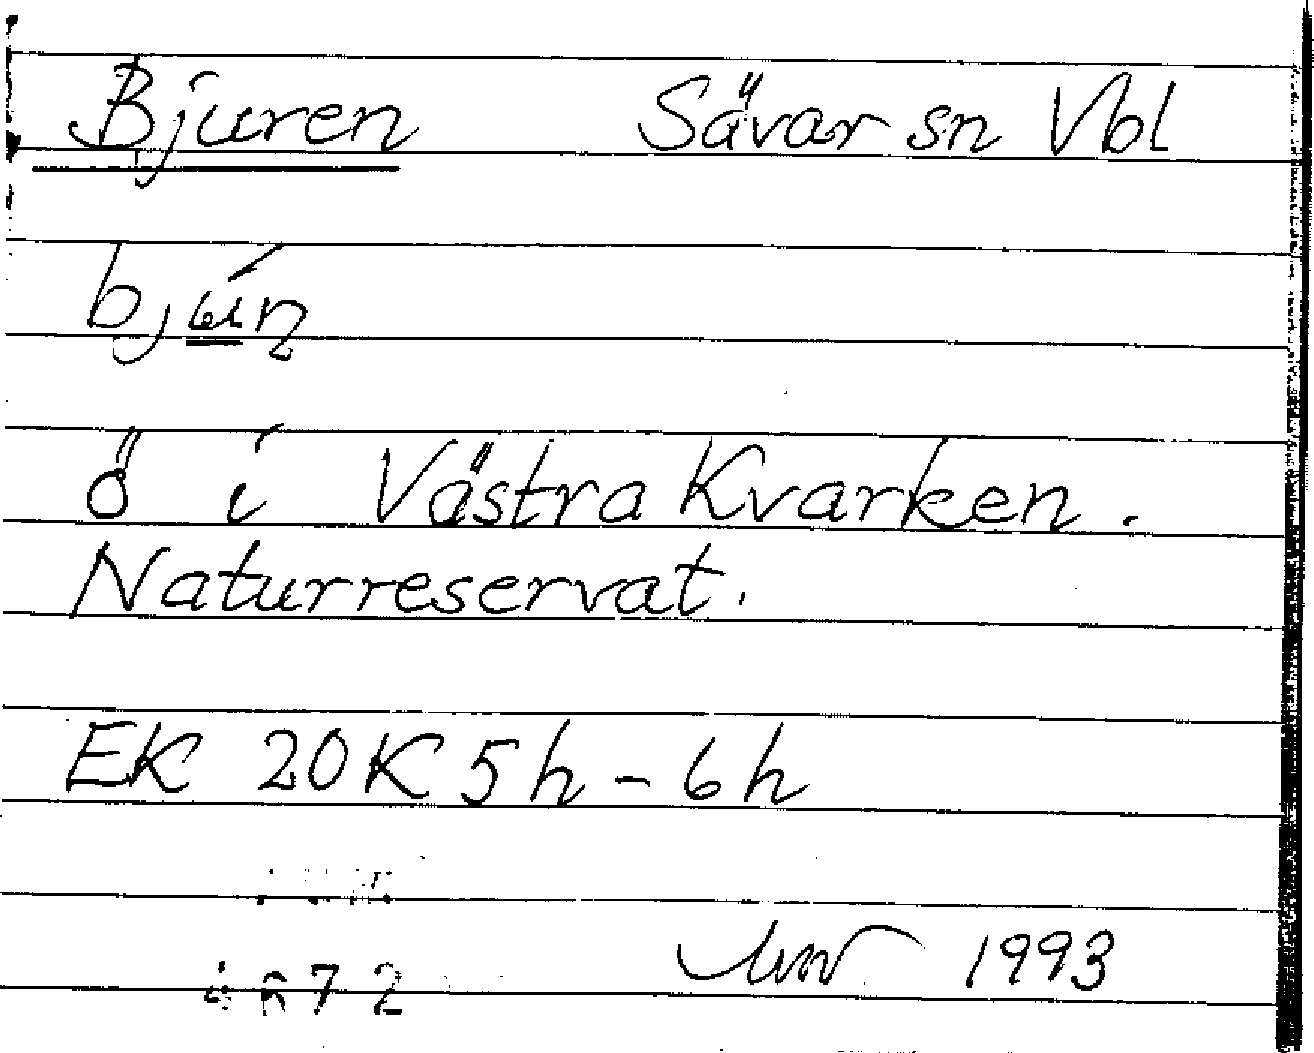 Bjuren Sävar sn Vbl
ö i Västra Kvarken.
Naturreservat.
EK 20K 5h-6h
1993